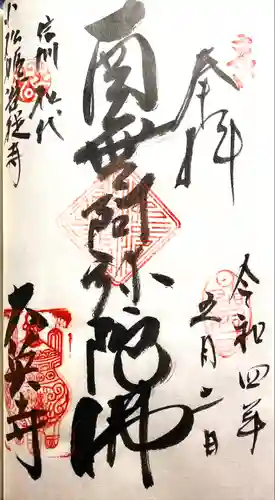 奉拝
令和四年
五月二日
南無阿弥陀佛
信州松代
小松姫菩提寺
大英寺